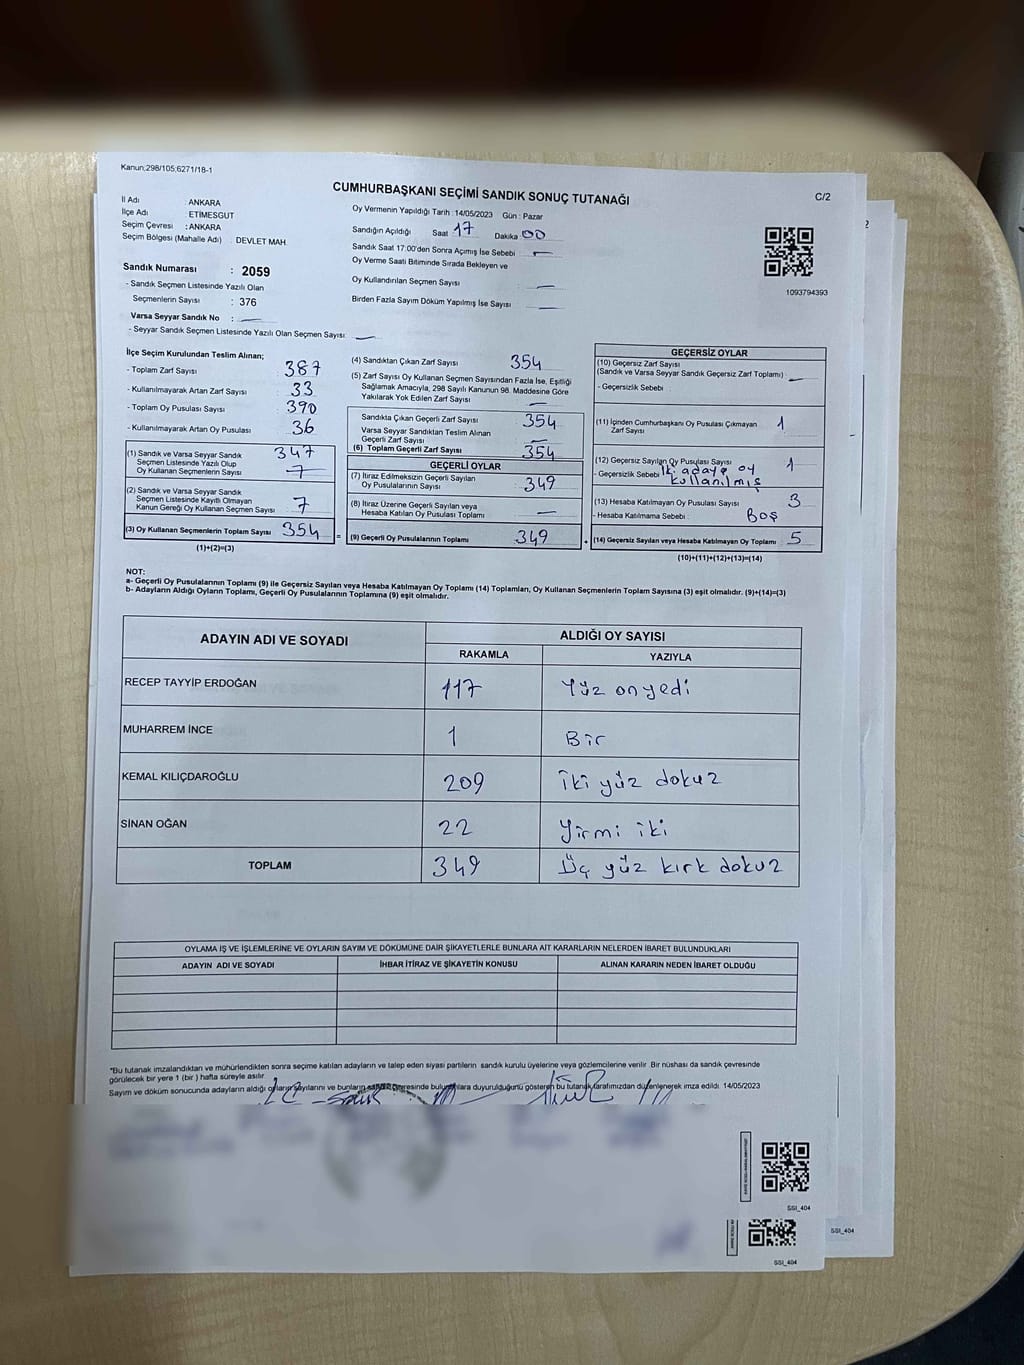 Kanun;298/105;6271/18-1
CUMHURBAŞKANI SEÇİMİ SANDIK SONUÇ TUTANAĞI
C/2
İl Adı : ANKARA
İlçe Adı : ETİMESGUT
Seçim Çevresi : ANKARA
Seçim Bölgesi (Mahalle Adı) : DEVLET MAH.
Sandık Numarası : 2059
- Sandık Seçmen Listesinde Yazılı Olan
Seçmenlerin Sayısı : 376
Varsa Seyyar Sandık No : —
- Seyyar Sandık Seçmen Listesinde Yazılı Olan Seçmen Sayısı: —
Oy Vermenin Yapıldığı Tarih : 14/05/2023 Gün : Pazar
Sandığın Açıldığı Saat 17 Dakika 00
Sandık Saat 17:00'den Sonra Açımış İse Sebebi : —
Oy Verme Saati Bitiminde Sırada Bekleyen ve
Oy Kullandırılan Seçmen Sayısı : —
Birden Fazla Sayım Döküm Yapılmış İse Sayısı : —
1093794393
İlçe Seçim Kurulundan Teslim Alınan;
- Toplam Zarf Sayısı 387
- Kullanılmayarak Artan Zarf Sayısı 33
- Toplam Oy Pusulası Sayısı 390
- Kullanılmayarak Artan Oy Pusulası 36
(1) Sandık ve Varsa Seyyar Sandık 347
Seçmen Listesinde Yazılı Olup
Oy Kullanan Seçmenlerin Sayısı 7
(2) Sandık ve Varsa Seyyar Sandık
Seçmen Listesinde Kayıtlı Olmayan 7
Kanun Gereği Oy Kullanan Seçmen Sayısı
(3) Oy Kullanan Seçmenlerin Toplam Sayısı 354 =
(1)+(2)=(3)
(4) Sandıktan Çıkan Zarf Sayısı 354
(5) Zarf Sayısı Oy Kullanan Seçmen Sayısından Fazla İse, Eşitliği
Sağlamak Amacıyla, 298 Sayılı Kanunun 98. Maddesine Göre
Yakılarak Yok Edilen Zarf Sayısı —
Sandıkta Çıkan Geçerli Zarf Sayısı 354
Varsa Seyyar Sandıktan Teslim Alınan
Geçerli Zarf Sayısı —
(6) Toplam Geçerli Zarf Sayısı 354
GEÇERLİ OYLAR
(7) İtiraz Edilmeksizin Geçerli Sayılan
Oy Pusulalarının Sayısı 349
(8) İtiraz Üzerine Geçerli Sayılan veya
Hesaba Katılan Oy Pusulası Toplamı —
(9) Geçerli Oy Pusulalarının Toplamı 349 +
GEÇERSİZ OYLAR
(10) Geçersiz Zarf Sayısı
(Sandık ve Varsa Seyyar Sandık Geçersiz Zarf Toplamı) : —
- Geçersizlik Sebebi :
(11) İçinden Cumhurbaşkanı Oy Pusulası Çıkmayan
Zarf Sayısı 1
(12) Geçersiz Sayılan Oy Pusulası Sayısı 1
- Geçersizlik Sebebi : İki adaya oy
kullanılmış
(13) Hesaba Katılmayan Oy Pusulası Sayısı 3
- Hesaba Katılmama Sebebi : Boş
(14) Geçersiz Sayılan veya Hesaba Katılmayan Oy Toplamı 5
(10)+(11)+(12)+(13)=(14)
NOT:
a- Geçerli Oy Pusulalarının Toplamı (9) ile Geçersiz Sayılan veya Hesaba Katılmayan Oy Toplamı (14) Toplamları, Oy Kullanan Seçmenlerin Toplam Sayısına (3) eşit olmalıdır. (9)+(14)=(3)
b- Adayların Aldığı Oyların Toplamı, Geçerli Oy Pusulalarının Toplamına (9) eşit olmalıdır.
ADAYIN ADI VE SOYADI ALDIĞI OY SAYISI
RAKAMLA YAZIYLA
RECEP TAYYİP ERDOĞAN 117 Yüz onyedi
MUHARREM İNCE 1 Bir
KEMAL KILIÇDAROĞLU 209 iki yüz dokuz
SİNAN OĞAN 22 Yirmi iki
TOPLAM 349 Üç yüz kırk dokuz
OYLAMA İŞ VE İŞLEMLERİNE VE OYLARIN SAYIM VE DÖKÜMÜNE DAİR ŞİKAYETLERLE BUNLARA AİT KARARLARIN NELERDEN İBARET BULUNDUKLARI
ADAYIN ADI VE SOYADI İHBAR İTİRAZ VE ŞİKAYETİN KONUSU ALINAN KARARIN NEDEN İBARET OLDUĞU
*Bu tutanak imzalandıktan ve mühürlendikten sonra seçime katılan adayların ve talep eden siyasi partilerin sandık kurulu üyelerine veya gözlemcilerine verilir. Bir nüshası da sandık çevresinde
görülecek bir yere 1 (bir) hafta süreyle asılır.
Sayım ve döküm sonucunda adayların aldığı oyların sayılarını ve bunların sandık çevresinde bulunanlara duyurulduğunu gösteren bu tutanak tarafımızdan düzenlenerek imza edildi. 14/05/2023
SSI_404
SSI_404
SSI_404